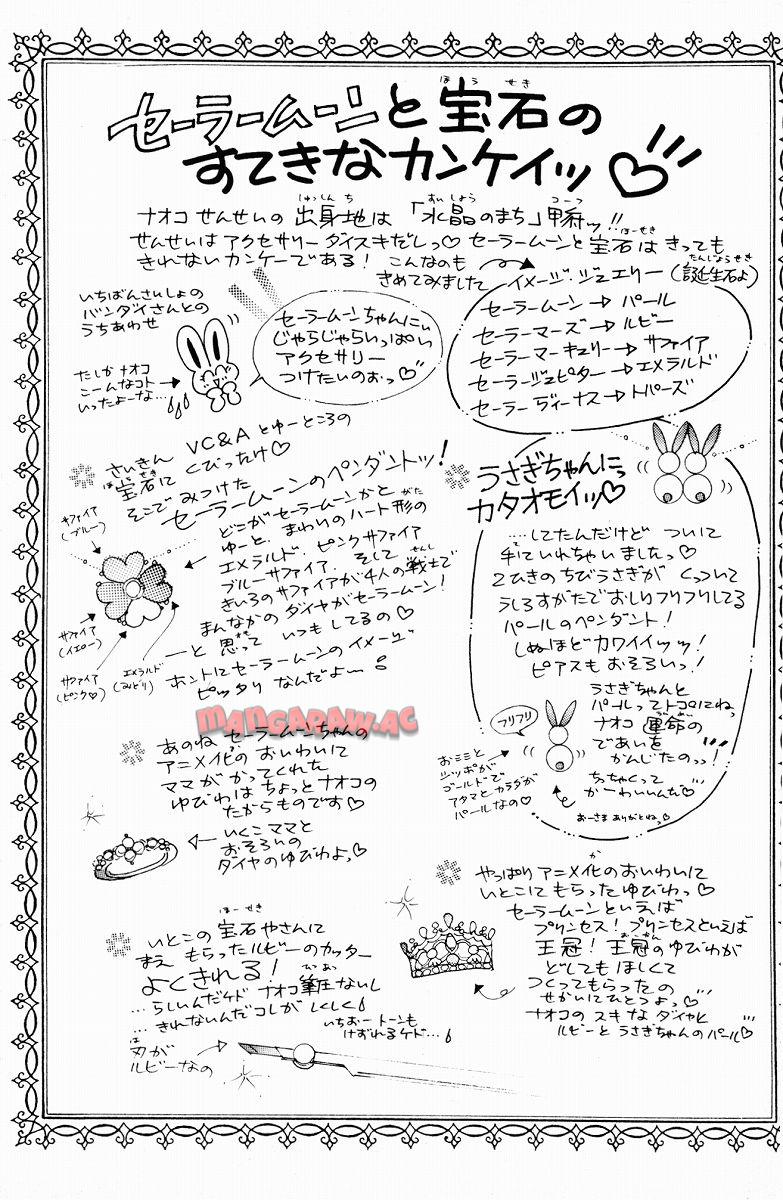 セーラームーンと宝石の
すてきなカンケイッ♡
ナオコ せんせいの 出身地は 「水晶のまち」甲府ッ!!
せんせいは アクセサリー ダイスキだしっ♡ セーラームーンと 宝石は きっても
きれない カンケーである! こんなのも
きめてみました
イメージ・ジュエリー(誕生石よ)
セーラームーン→パール
セーラーマーズ→ルビー
セーラーマーキュリー→サファイア
セーラージュピター→エメラルド
セーラーヴィーナス→トパーズ
いちばんさいしょの
バンダイさんとの
うちあわせ
たしかナオコ
こーんなコト
いったよーな…
セーラームーンちゃんにぃ
じゃらじゃらいっぱい
アクセサリー
つけたいのぉっ♡
さいきん VC&A とゆーところの
宝石に くびったけ♡
そこで みつけた
セーラームーンのペンダントッ!
どこがセーラームーンかと
ゆーと、まわりのハート形の
エメラルド、ピンクサファイア
ブルーサファイア、そして
きいろのサファイアが4人の戦士で
まんなかの ダイヤがセーラームーン!
ーと 思って いつも してるの♡
ホントにセーラームーンのイメージ
ピッタリ なんだよー!
サファイア
(ブルー)
サファイア
(イエロー)
サファイア
(ピンク♡)
エメラルド
(みどり)
うさぎちゃんにっ
カタオモイッ♡
…してたんだけど ついに
手にいれちゃいましたっ♡
2ひきのちびうさぎが くっついて
うしろすがたでおしりフリフリしてる
パールのペンダント!
しぬほどカワイイッッ!
ピアスもおそろいっ!
うさぎちゃんと
パールってトコにねっ
ナオコ 運命の
であいを
かんじたのっ!
ちっちゃくって
かーわいいんだ♡
おーさま ありがとねっ♡
フリフリ
おミミと
シッポが
ゴールドで
アタマとカラダが
パールなの♡
あのね セーラームーンちゃんの
アニメ化の おいわいに
ママが かってくれた
ゆびわは ちょっと ナオコの
たからものです♡
いくこママと
おそろいの
ダイヤのゆびわよっ♡
やっぱり アニメ化のおいわいに
いとこに もらったゆびわっ♡
セーラームーンといえば
プリンセス! プリンセスといえば
王冠! 王冠のゆびわが
どしてもほしくて
つくってもらったの
せかいにひとつよっ♡
ナオコの スキな ダイヤと
ルビーと うさぎちゃんの パール♡
いとこの 宝石やさんに
まえ もらったルビーのカッター
よくきれる!
…らしいんだケド ナオコ 筆圧ないし
…きれないんだコレが しくしく
いちおートーンも
けずれるケド…
刃が
ルビーなの
MANGARAW.AC